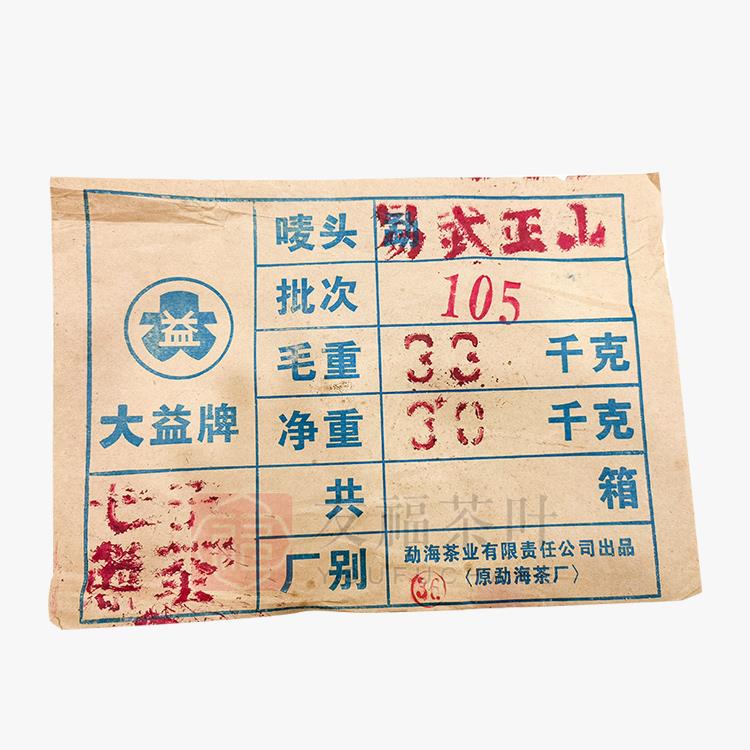 唛头 易武正山
批次 105
益
毛重 33 千克
大益牌
净重 30 千克
七子
共 箱
友福茶叶
厂别 勐海茶业有限责任公司出品
〈原勐海茶厂〉
36